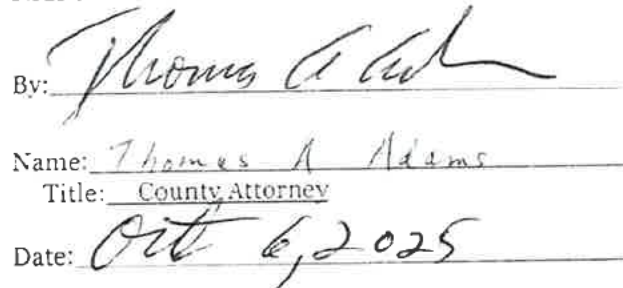 By: Thomas A Adams
Name: Thomas A Adams
Title: County Attorney
Date: Oct 6, 2025